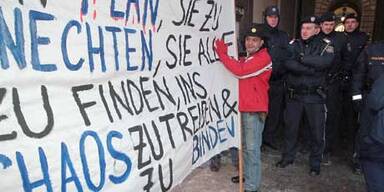 PLAN, SIE ZU
NECHTEN, SIE ALLE
ZU FINDEN, INS
CHAOS ZU TREIBEN &
ZU BINDEN